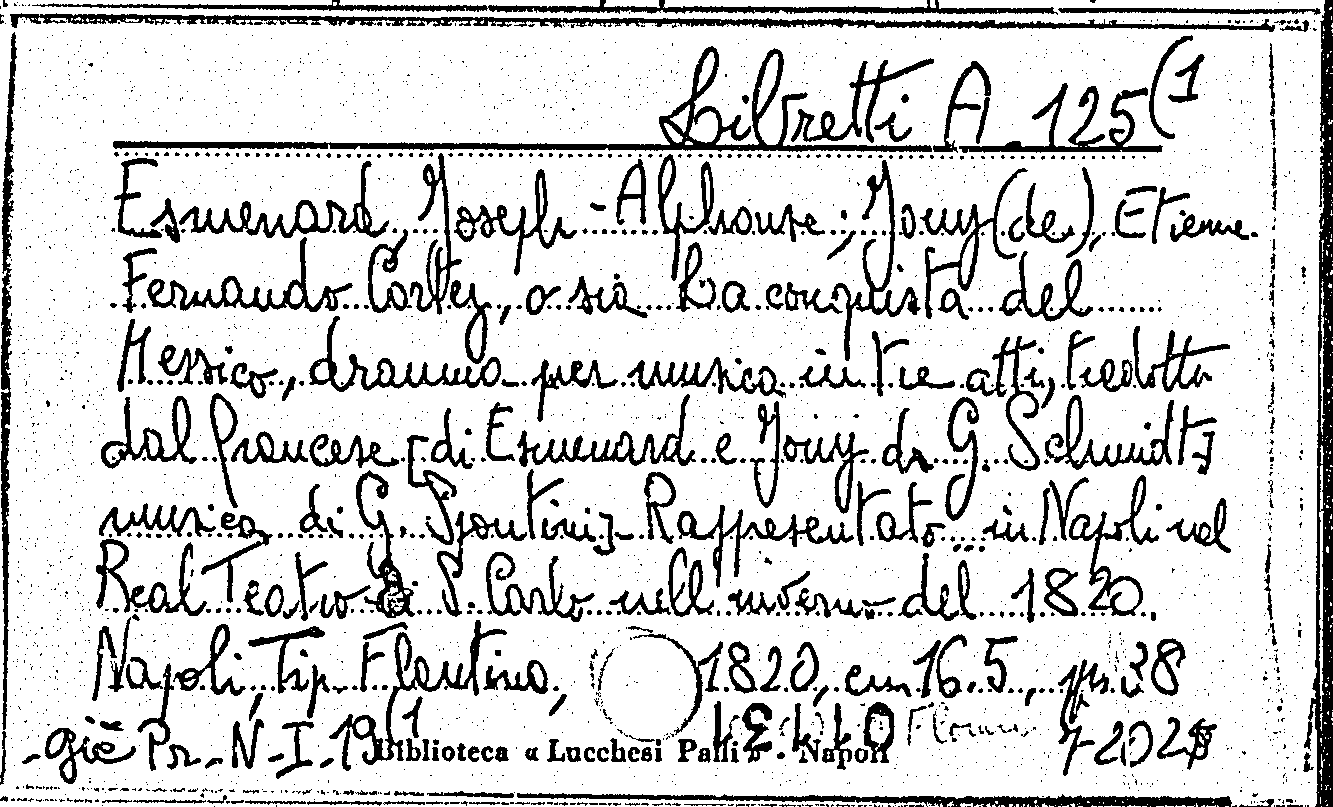 Libretti A. 125(1
Esmenard, Joseph-Alphonse; Jouy (de), Etienne.
Fernando Cortez, o sia La conquista del
Messico, dramma per musica in tre atti, tradotto
dal francese [di Esmenard e Jouy da G. Schmidt;
musica di G. Spontini]. Rappresentato in Napoli nel
Real Teatro di S. Carlo nell'inverno del 1820.
Napoli, Tip. Flautina, 1820, cm 16.5, pp. 38
-già Pr.-N-I-19(1
Biblioteca « Lucchesi Palli » - Napoli